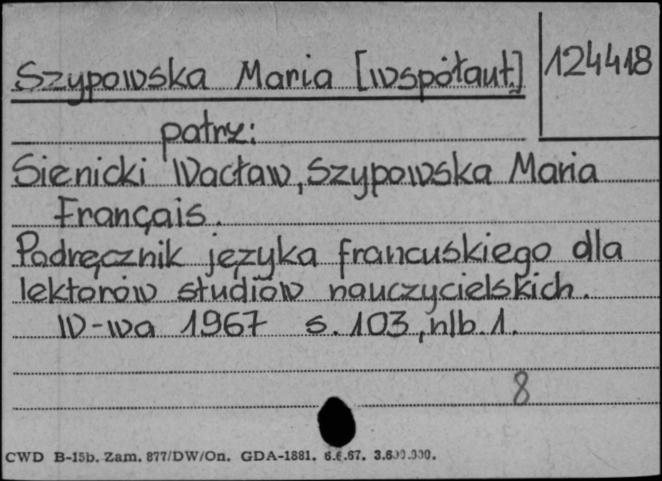 Szypowska Maria [współaut.]
124418
patrz:
Sienicki Wacław, Szypowska Maria
Français.
Podręcznik języka francuskiego dla
lektorów studiów nauczycielskich.
W-wa 1967 s. 103, nlb. 1.
8
CWD B-15b. Zam. 877/DW/On. GDA-1881. 6.6.67. 3.600.000.